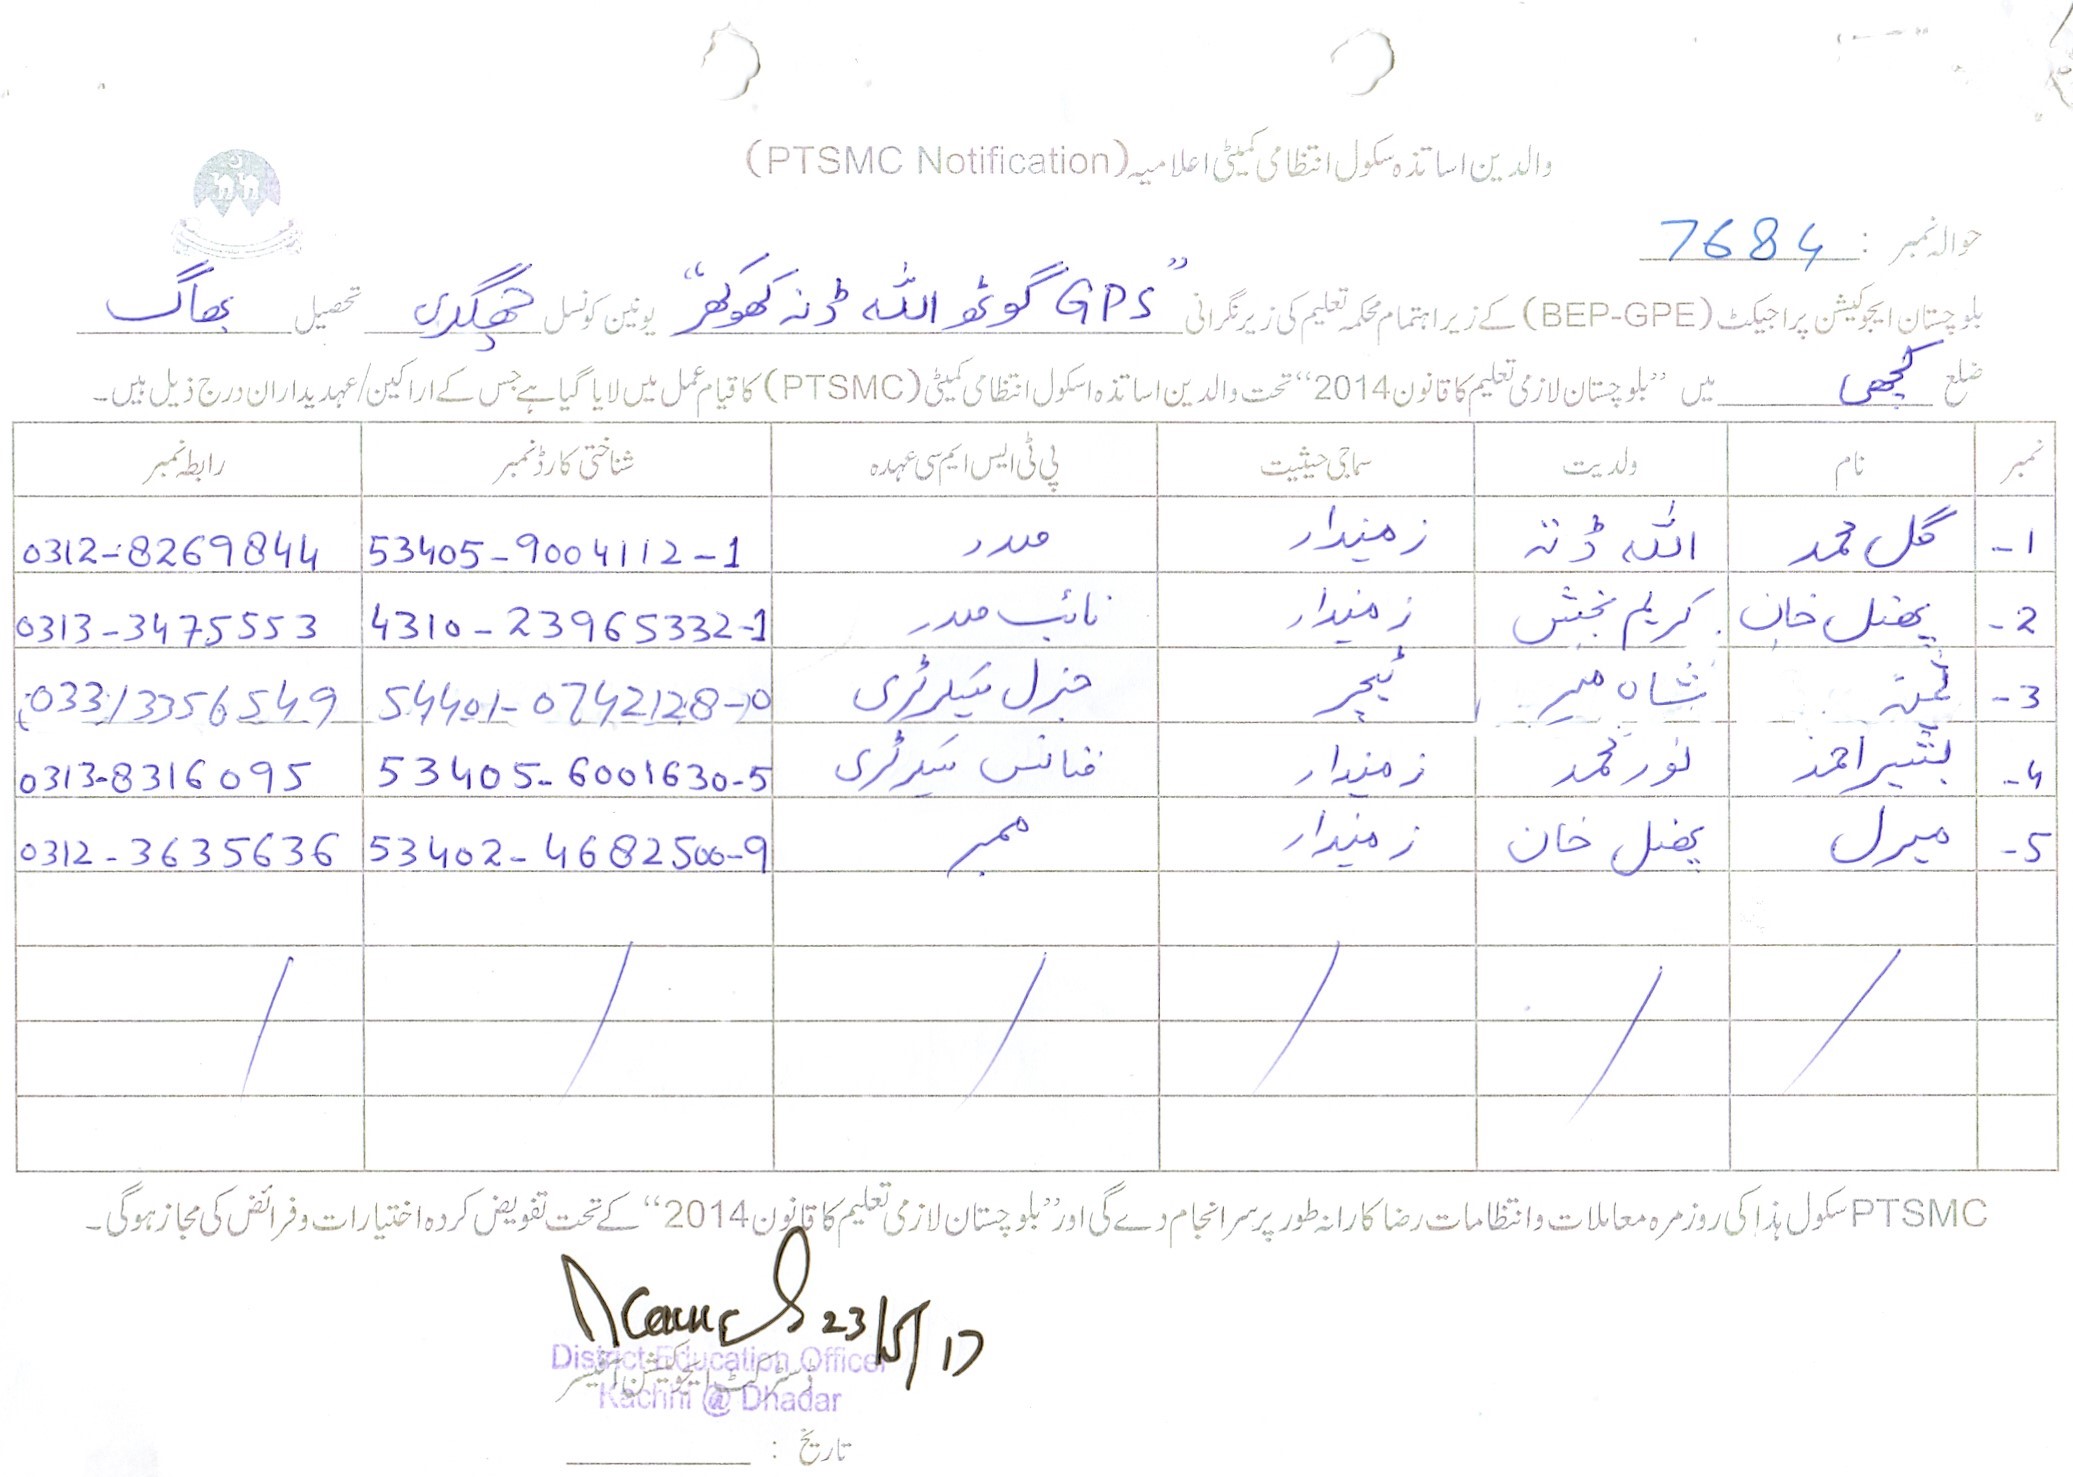 والدین اساتذہ سکول انتظامی کمیٹی اعلامیہ (PTSMC Notification)
حوالہ نمبر : 7684
بلوچستان ایجوکیشن پراجیکٹ (BEP-GPE) کے زیر اہتمام محکمہ تعلیم کی زیر نگرانی "GPS گوٹھ اللہ ڈنہ کھوکھر" یونین کونسل چھلگری تحصیل بھاگ
ضلع کچھی میں "بلوچستان لازمی تعلیم کا قانون 2014" تحت والدین اساتذہ اسکول انتظامی کمیٹی (PTSMC) کا قیام عمل میں لایا گیا ہے جس کے اراکین/عہدیداران درج ذیل ہیں۔
نمبر نام ولدیت سماجی حیثیت پی ٹی ایس ایم سی عہدہ شناختی کارڈ نمبر رابطہ نمبر
1- گل محمد اللہ ڈنہ زمیندار صدر 53405-9004112-1 0312-8269844
2- پھتل خان کریم بخش زمیندار نائب صدر 4310-23965332-1 0313-3475553
3- شاہ میر ٹیچر جنرل سیکرٹری 54401-0742128-0 03313356549
4- بشیر احمد نور محمد زمیندار فنانس سیکرٹری 53405-6001630-5 0313-8316095
5- میرل پھتل خان زمیندار ممبر 53402-4682500-9 0312-3635636
PTSMC سکول ہذا کی روزمرہ معاملات و انتظامات رضا کارانہ طور پر سر انجام دے گی اور "بلوچستان لازمی تعلیم کا قانون 2014" کے تحت تفویض کردہ اختیارات و فرائض کی مجاز ہوگی۔
23/5/17
District Education Officer
ڈسٹرکٹ ایجوکیشن آفیسر
Kachhi @ Dhadar
تاریخ :